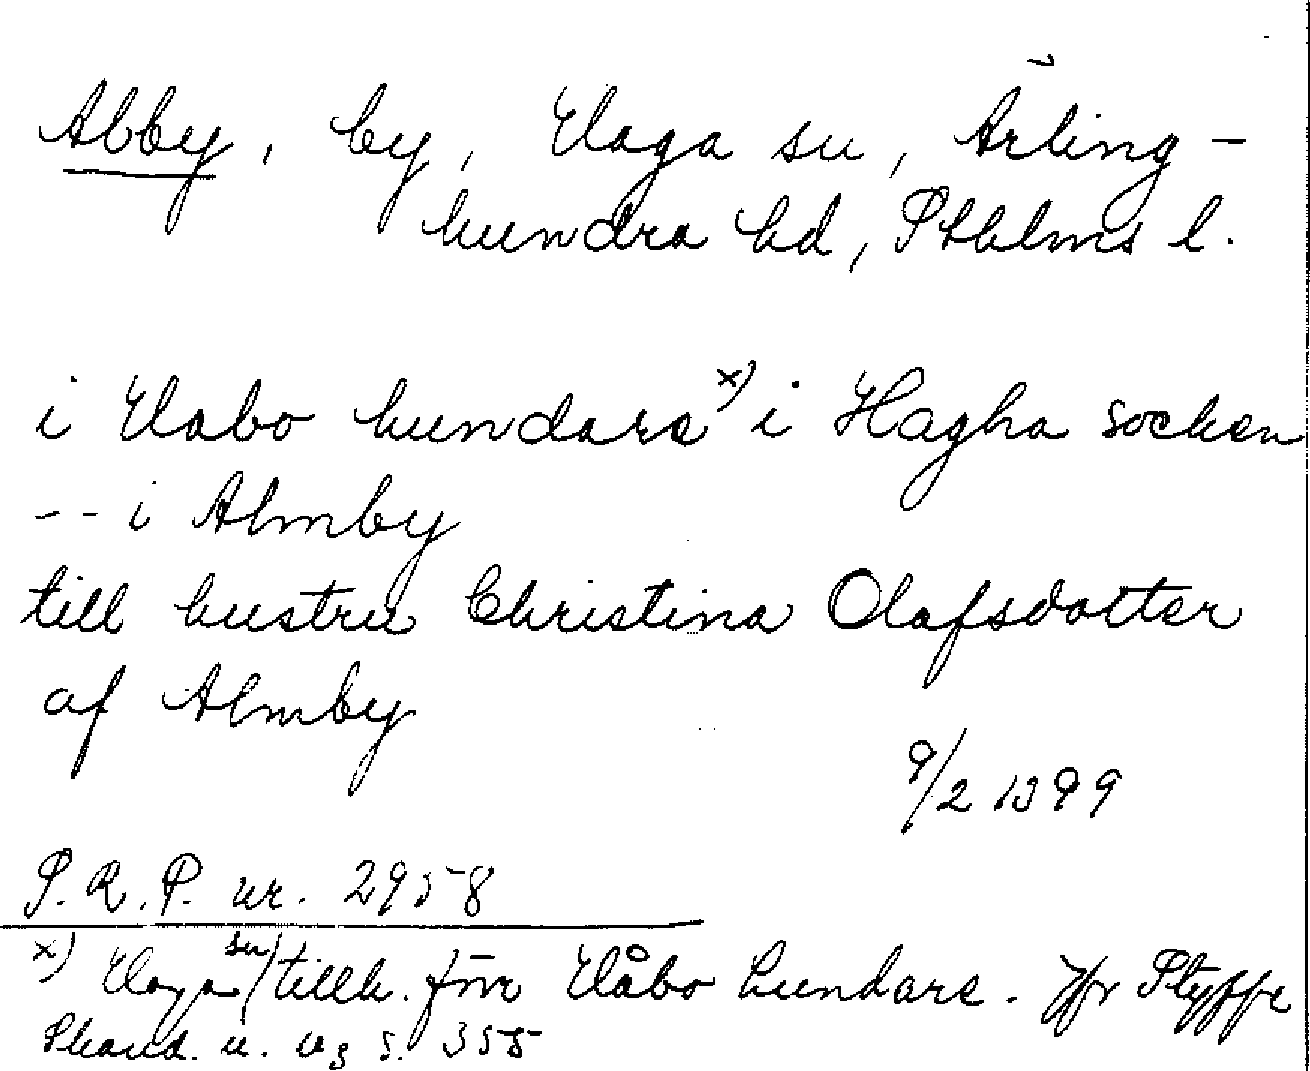 Abby, by, Haga sn, Ärling-
hundra hd, Sthlms l.
i Habo hundare x) i Hagha socken
-- i Almby
till hustru Christina Olafsdotter
af Almby
9/2 1399
S.R.P. nr. 2958
x) Haga sn tillh. förr Håbo hundare. Jfr Styffe
Skand. u. us s. 355